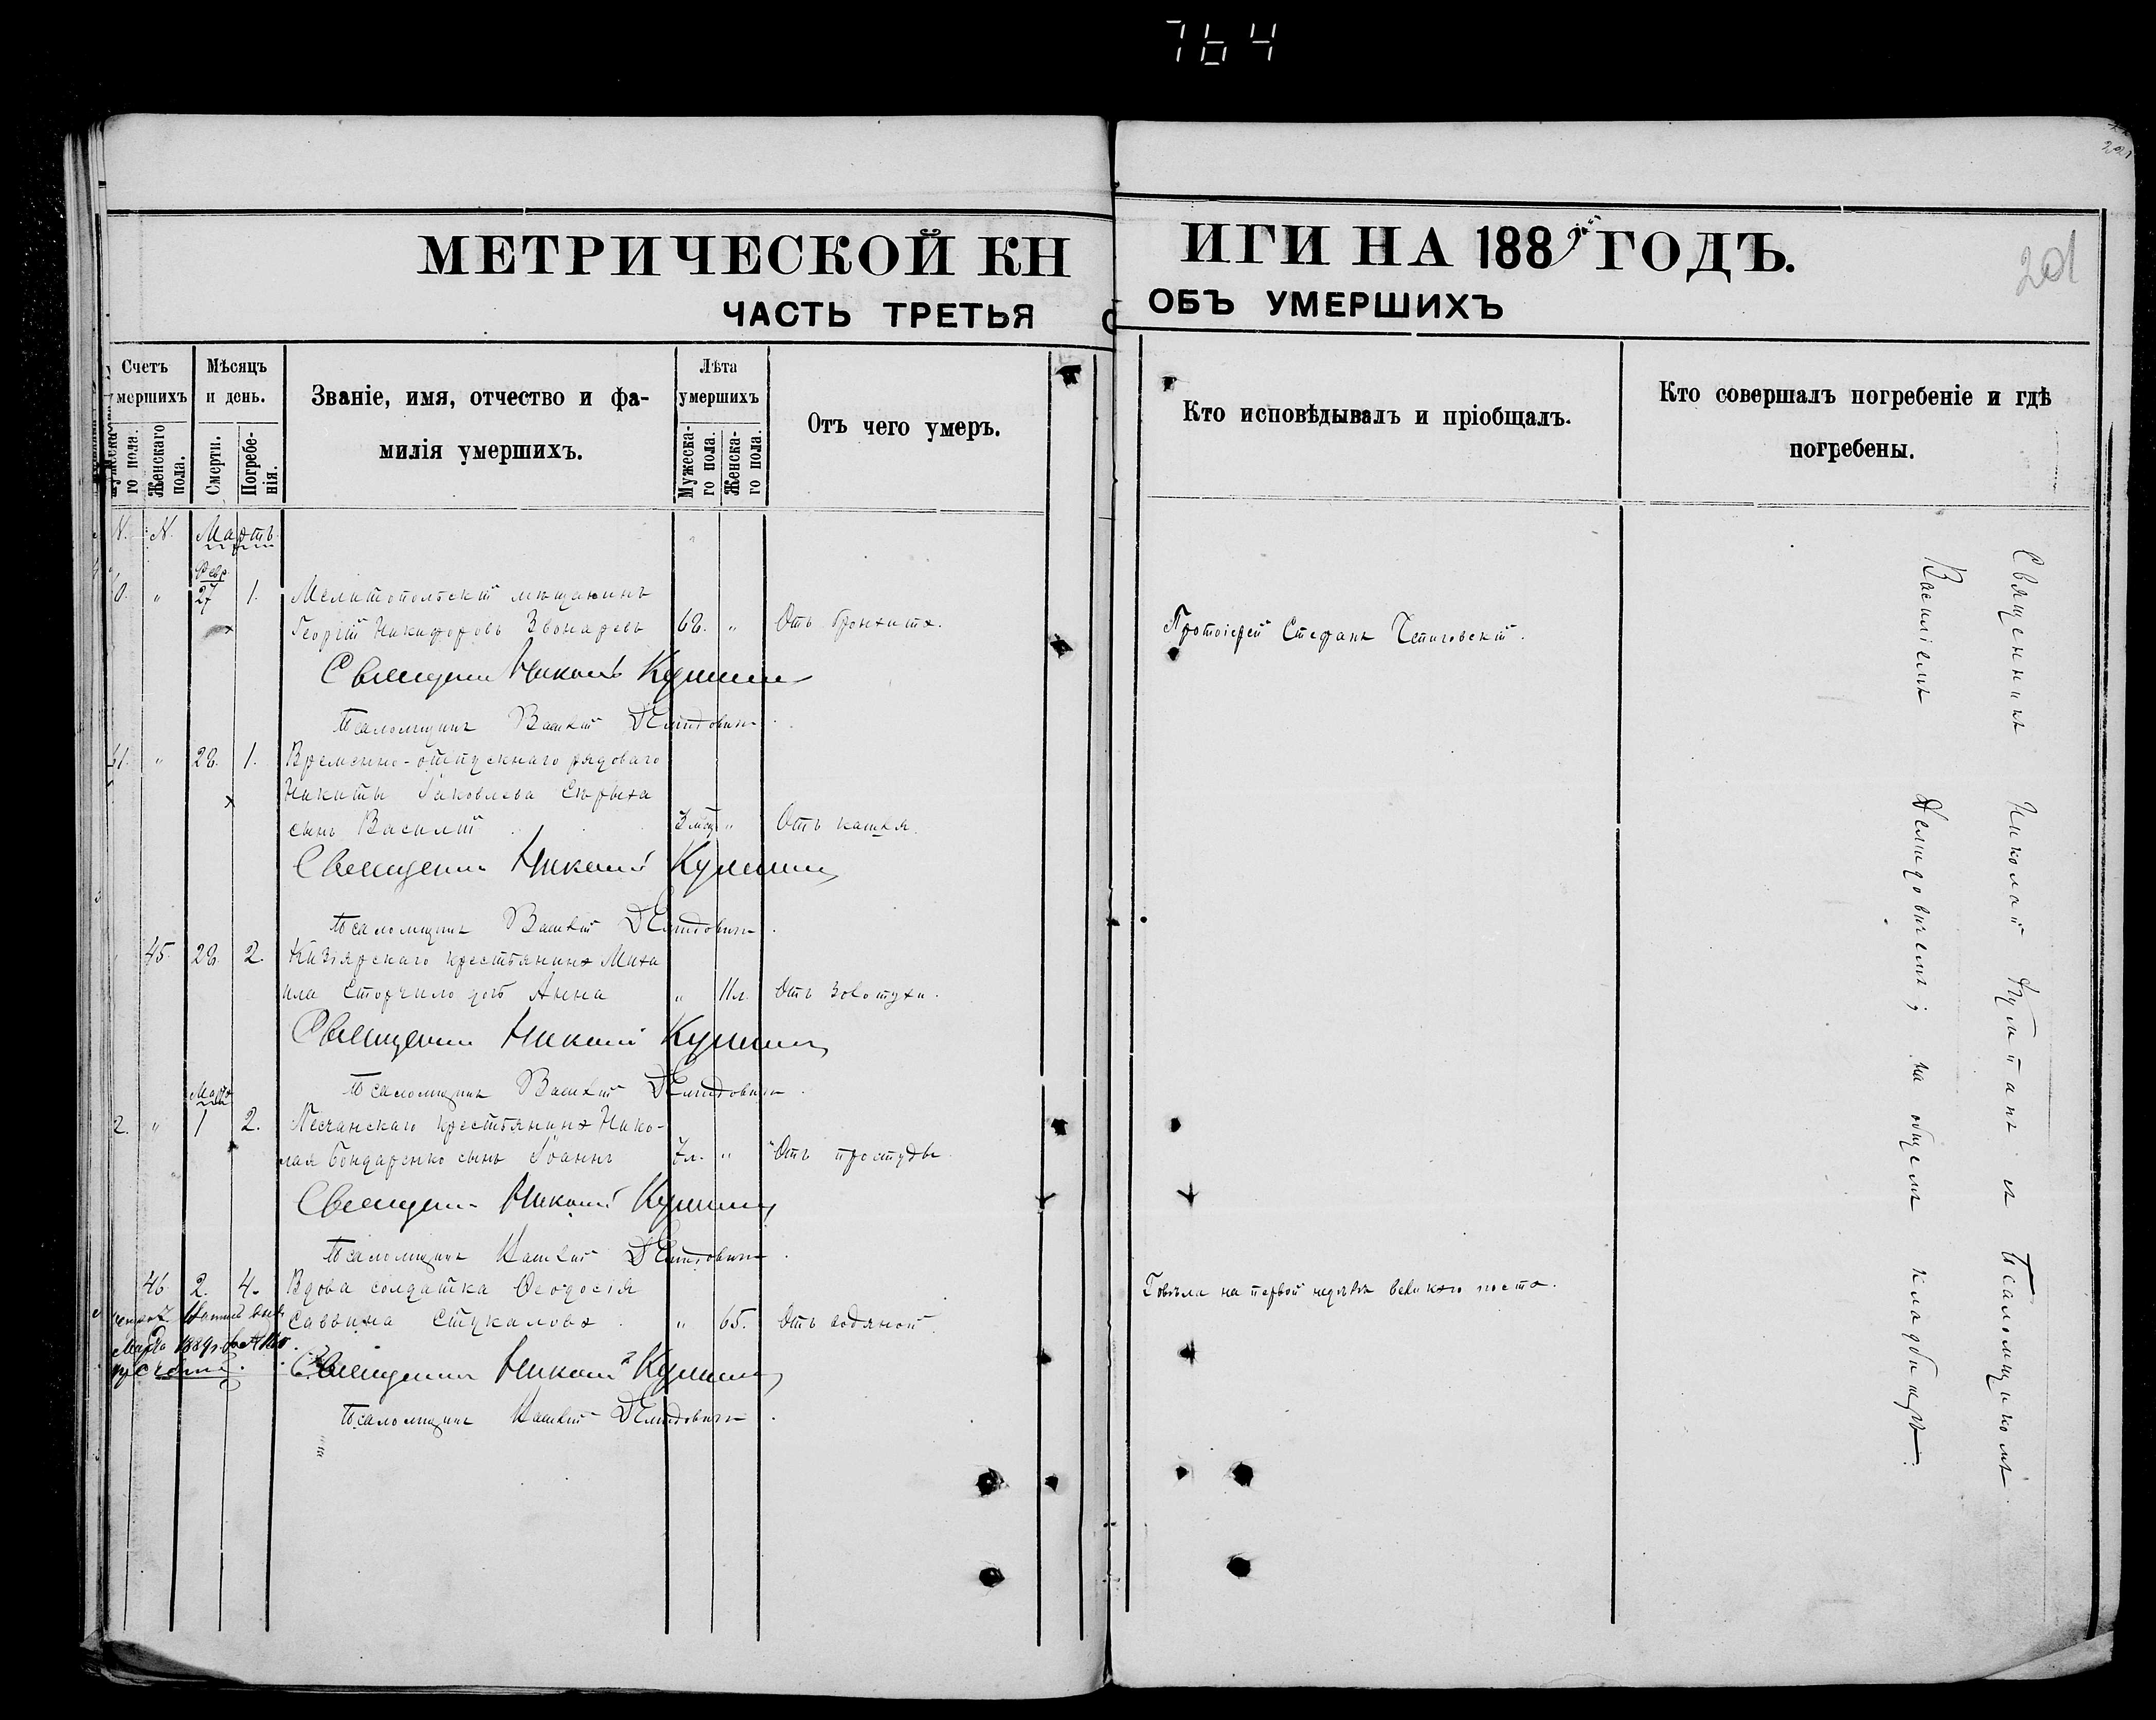 764
МЕТРИЧЕСКОЙ КНИГИ НА 1889й ГОДЪ.
201
ЧАСТЬ ТРЕТЬЯ ОБЪ УМЕРШИХЪ
Счетъ умершихъ
Мѣсяцъ и день.
Званіе, имя, отчество и фамилія умершихъ.
Лѣта умершихъ
Отъ чего умеръ.
Кто исповѣдывалъ и пріобщалъ.
Кто совершалъ погребеніе и гдѣ погребены.
Мужескаго пола.
Женскаго пола.
Смерти.
Погребенія.
Мужескаго пола.
Женскаго пола.
N. N. Мартъ
Февр.
27 1. Мелитопольскій мѣщанинъ
Георгій Никифоровъ Звонаревъ 68. " Отъ бронхита. Протоіерей Стефанъ
Священникъ Николай
Псаломщикъ Василій Демидовичъ.
41. " 28. 1. Временно-отпускнаго рядоваго
Никиты Іаковлева
сынъ Василій 3 мѣс " Отъ кашля.
Священникъ Николай
Псаломщикъ Василій Демидовичъ.
45. 28. 2. Кизіярскаго крестьянина Миха
ила Сторчило дочь Анна " 11л. Отъ золотухи.
Священникъ Николай
Псаломщикъ Василій Демидовичъ.
Мартъ
2. " 1 2. Песчанскаго крестьянина Нико-
лая Бондаренко сынъ Іоаннъ 7л. " Отъ простуды.
Священникъ Николай
Псаломщикъ Василій Демидовичъ.
46. 2. 4. Вдова солдатка Ѳеодосія Говѣла на первой недѣлѣ великаго поста.
Саввина Стукалова " 65. Отъ водяной.
Марта 1889 г.
Священникъ Николай
Псаломщикъ Василій Демидовичъ.
Священникъ Николай съ Псаломщикомъ
Василіемъ Демидовичемъ; на общемъ кладбищѣ.